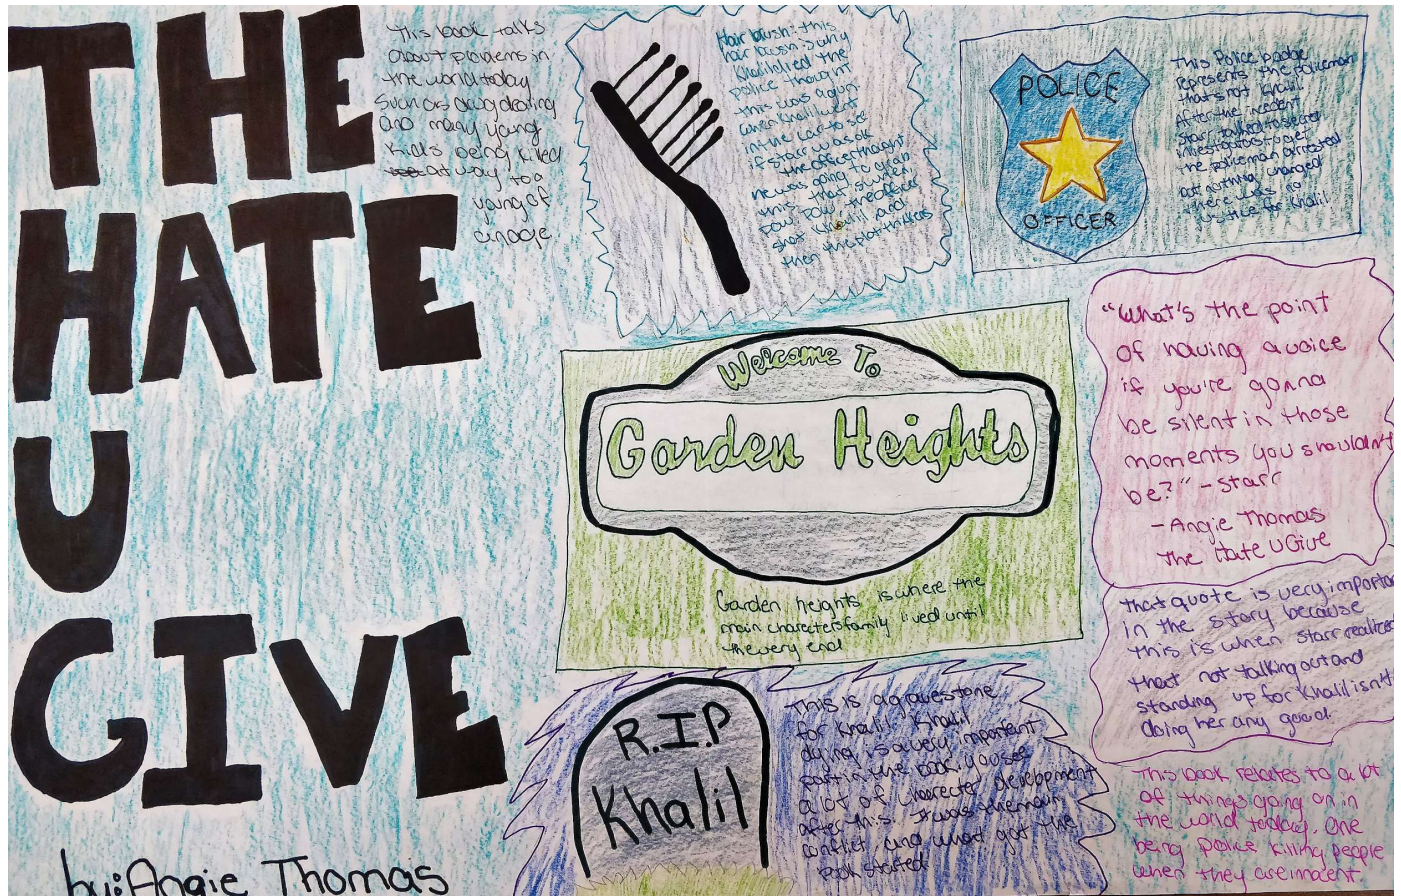 THE
HATE
U
GIVE
by: Angie Thomas
This book talks
about problems in
the world today
such as drug dealing
and many young
kids being killed
at way to a
young of
an age.
Hair brush: this
hair brush is why
Khalil died the
police thought
this was a gun
when Khalil went
in the car to see
if Starr was ok
the officer thought
he was going to grab
this, that is when
pow pow pow the officer
shot Khalil and
then the plot thickens
POLICE
OFFICER
This Police badge
represents the policeman
that shot Khalil
After the incedent
Starr talked to secret
investigators to get
the policeman arrested
but nothing changed
there was no
justice for Khalil
Welcome To
Garden Heights
Garden heights is where the
main characters family lived until
the very end
"What's the point
of having a voice
if you're gonna
be silent in those
moments you shouldn't
be?" - Starr
- Angie Thomas
The Hate U Give
that quote is very importan
in the story because
this is when Starr realizes
that not talking out and
standing up for Khalil isn't
doing her any good.
R.I.P
Khalil
This is a gravestone
for Khalil. Khalil
dying is a very important
part in the book. You see
a lot of character development
after this. It was the main
conflict and what got the
book started
This book relates to a lot
of things going on in
the world today. One
being police killing people
when they are inocent.